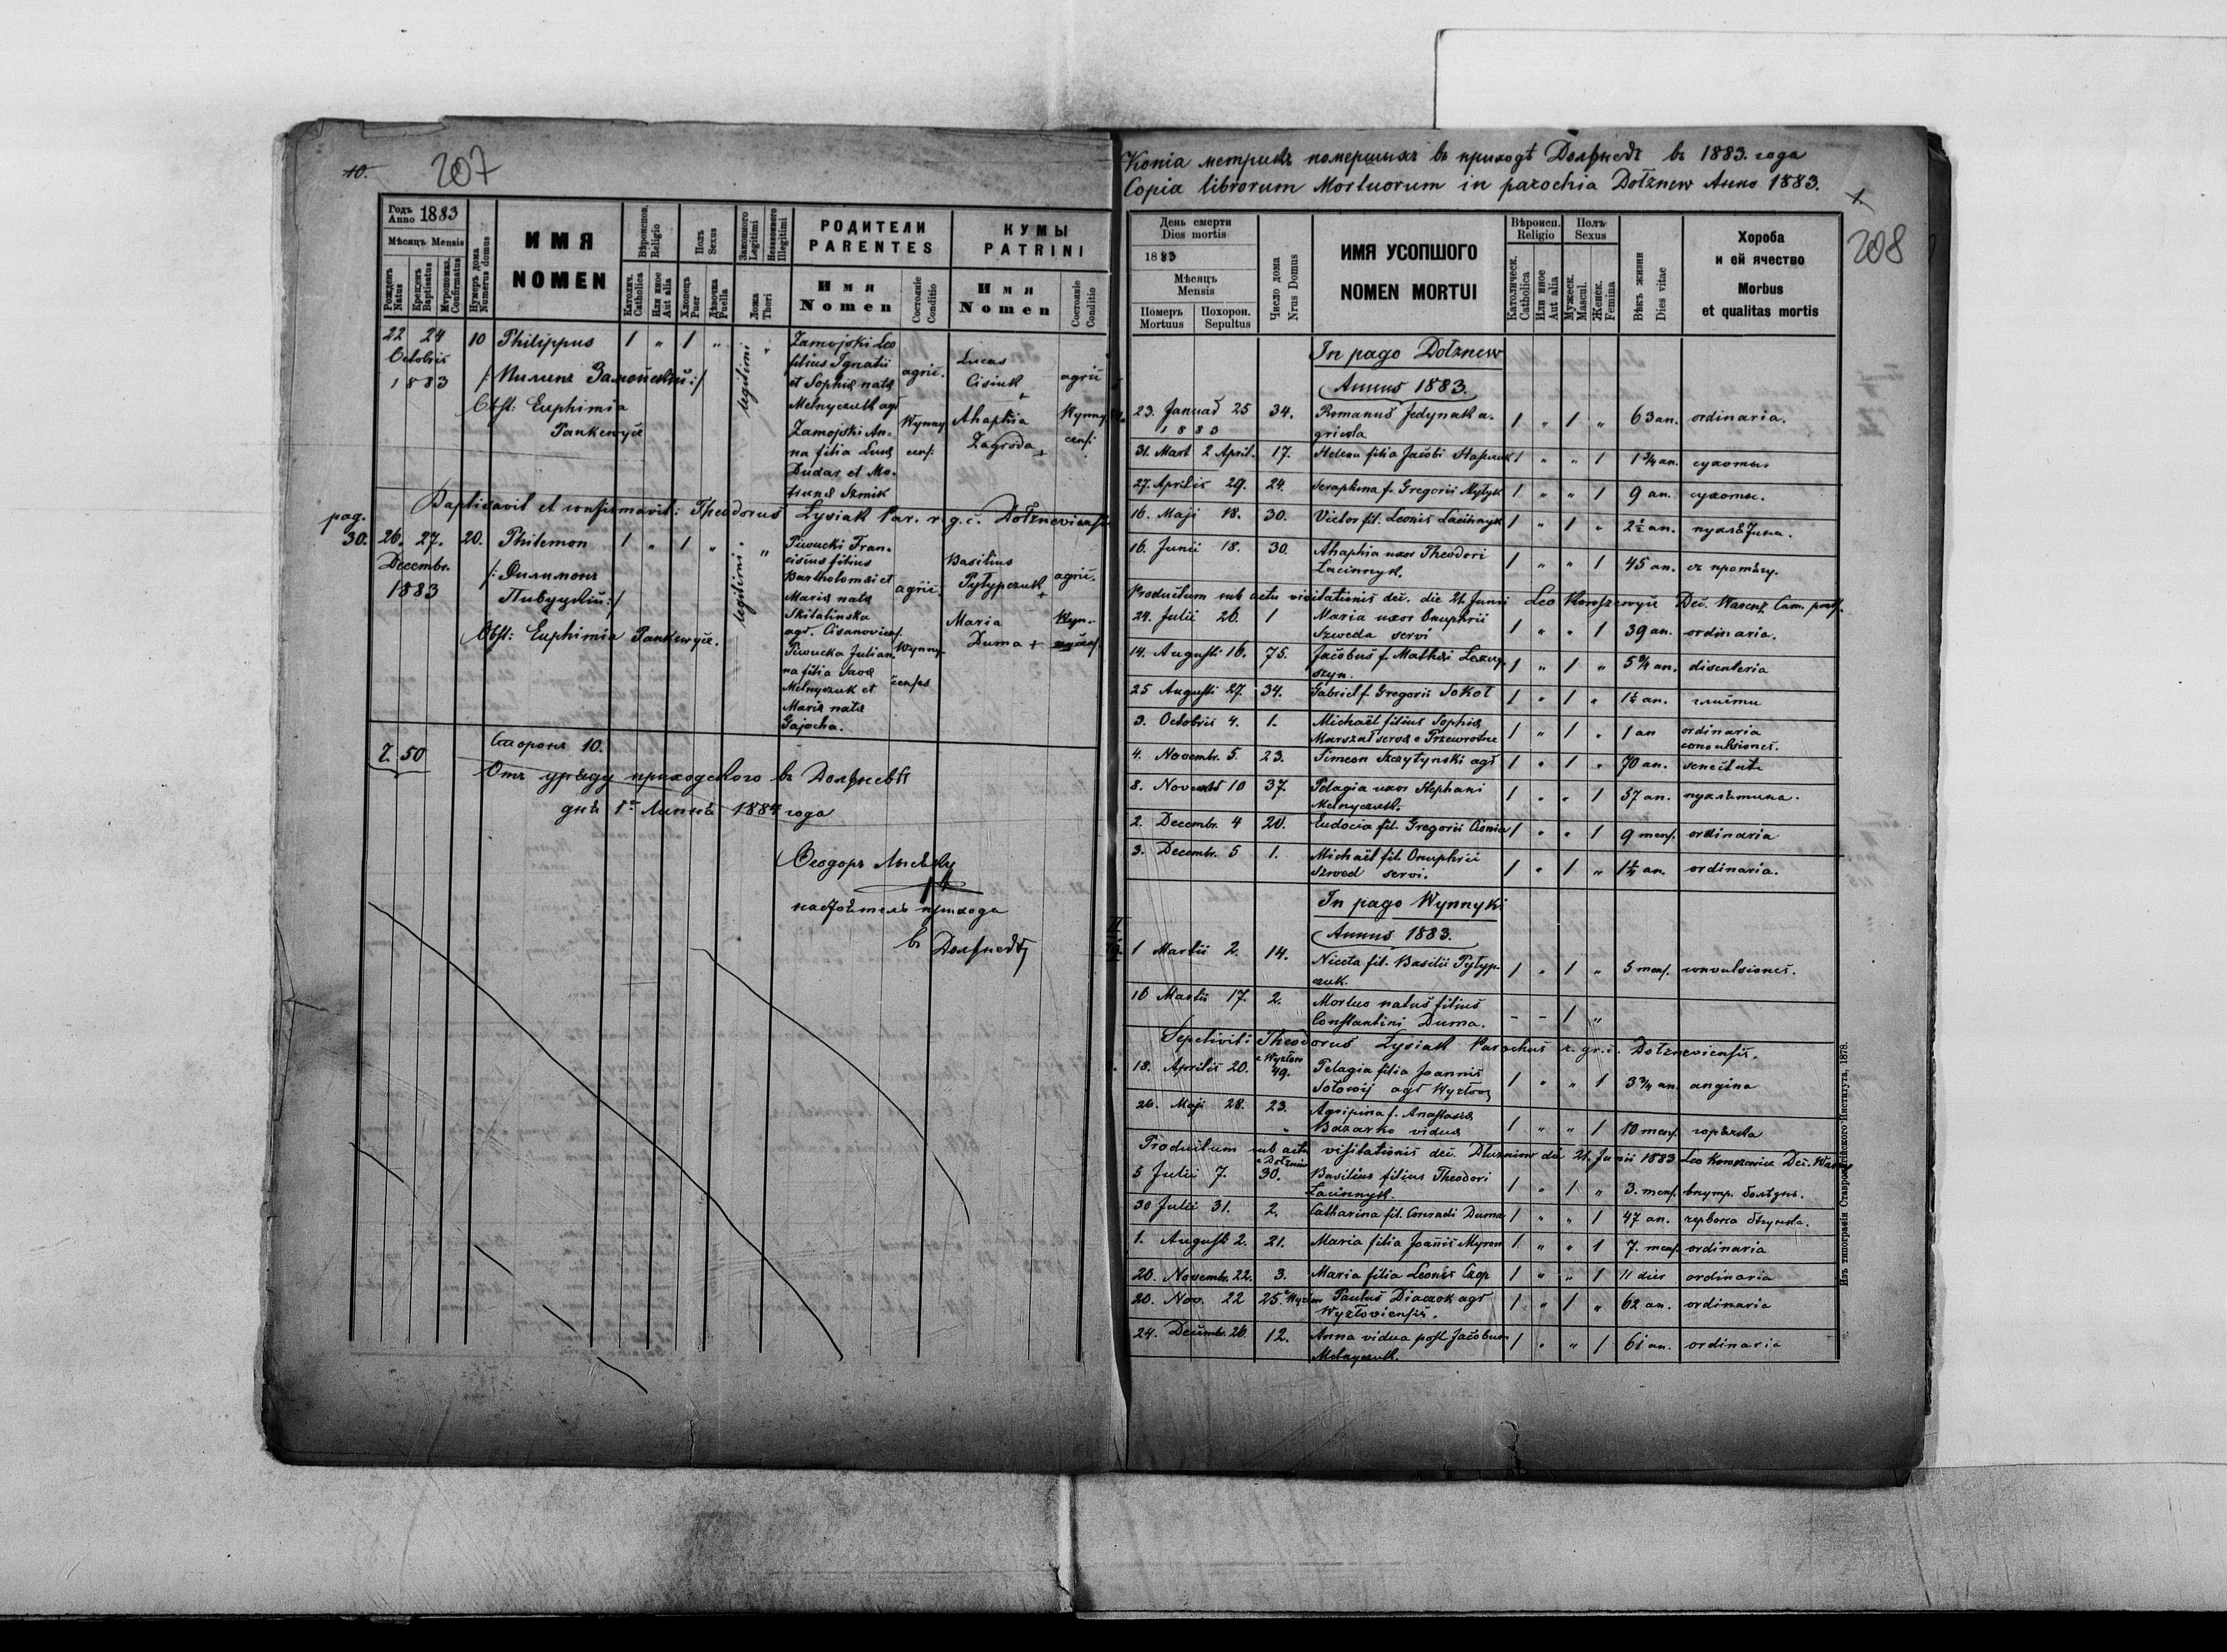 10.
207
Годъ
Anno 1883
Мѣсяцъ Mensis
Рожденъ
Natus
Крещенъ
Baptisatus
Мѵропомаз.
Confirmatus
Нумеръ дома
Numerus domus
ИМЯ
NOMEN
Вѣроиспов.
Religio
Католич.
Catholica
Или иное
Aut alia
Полъ
Sexus
Хлопецъ
Puer
Дѣвочка
Puella
Законного
Legitimi
Незаконного
Illegitimi
Ложа
Thori
РОДИТЕЛИ
PARENTES
Имя
Nomen
Состояніе
Conditio
КУМЫ
PATRINI
Имя
Nomen
Состояніе
Conditio
22 24 10 Philippus 1 " 1 " legitimi "
Octobris
1883
Obst: Euphimia
Pankewycz
Zamojski Leo
filius Ignatii
et Sophiæ natæ
Melnyczuk agr
Zamojski An-
na filia Lucæ
Dudar et Mo-
Szmik
agric.
Wynny
cens:
Lucas
Cisiuk
+
Ahaphia
Zagroda +
agric
Wynny
cens:
Baptisavit et confirmavit: Theodorus Łysiak Par. r. g. c. Dołzneviensis
pag.
30.
26. 27. 20. Philemon 1 " 1 " legitimi. "
Decembr.
1883
/: Филимонъ
Пивуцкій :/
Obst: Euphimia Pankewycz.
Piwucki Fran-
ciscus filius
Bartholomæi et
Mariæ natæ
Skitalinska
agr.
Piwucka Julian-
na filia Savæ
Melnyczuk et
Mariæ natæ
Gajocha.
agric.
Wynny-
censes
Basilius
Pyłypczuk +
Maria
Duma +
agric.
Wyn-
2. 50
Сторонъ 10.
Отъ уряду приходского въ Должневѣ
дня 1го 1884 года
Ѳеодоръ Лысякъ
настоятель прихода
въ Должневѣ
Копіа метрикъ помершыхъ въ приходѣ Должневъ въ 1883. года
Copia librorum Mortuorum in parochia Dołznew Anno 1883.
1
208
День смерти
Dies mortis
1883
Мѣсяцъ
Mensis
Померъ
Mortuus
Похорон.
Sepultus
Число дома
Nrus Domus
ИМЯ УСОПШОГО
NOMEN MORTUI
Вѣроисп.
Religio
Католическ.
Catholica
Или иное
Aut alia
Полъ
Sexus
Мужеск.
Mascul.
Женск.
Femina
Вѣкъ жизни
Dies vitae
Хороба
и ей ячество
Morbus
et qualitas mortis
In pago Dołznew
Annus 1883.
23. Januar 25 34. Romanus Fedynak a- 1 " 1 " 63 an. ordinaria.
1883 gricola
31. Mart 2 April. 17. Helena filia Jacobi 1 " " 1 1 3/4 an. сухоты
27. Aprilis 29. 24. Seraphina f. Gregorii Mytyk 1 " " 1 9 an. сухоты.
16. Maji 18. 30. Victor fil. Leonis Łacinnyk 1 " 1 " 2 1/2 an.
16. Junii 18. 30. Ahaphia uxor Theodori 1 " " 1 45 an.
Łacinnyk.
Productum sub actu visitationis dec. die 21. Junii Leo
24. Julii 26. 1 Maria uxor Onuphrii 1 " " 1 39 an. ordinaria.
Szweda servi
14. Augusti 16. 75. Jacobus f. Mathæi 1 " 1 " 5 3/4 an. disenteria
25 Augusti 27. 34. Gabriel f. Gregorii Sokoł 1 " 1 " 1 1/2 an. глисты
3. Octobris 4. 1. Michaël filius Sophiæ 1 " 1 " 1 an ordinaria
Marszał servæ e Przewrotne convulsiones.
4. Novembr. 5. 23. Simeon Szczytynski agr 1 " 1 " 70 an. senectute
8. Novembr 10 37. Pelagia uxor Stephani 1 " " 1 37 an.
Melnyczuk.
2. Decembr. 4 20. Eudocia fil. Gregorii 1 " " 1 9 mens. ordinaria
3. Decembr. 5 1. Michaël fil. Onuphrii 1 " 1 " 1 1/2 an. ordinaria.
Szwed servi.
In pago Wynnyki
Annus 1883.
1 Martii 2. 14. Niceta fil. Basilii Pyłyp- 1 " 1 " 5 mens. convulsiones.
czuk.
16 Martii 17. 2. Mortuo natus filius - - 1 "
Constantini Duma.
Sepelivit: Theodorus Łysiak Parochus r. gr. c. Dołzneviensis.
18. Aprilis 20. 49. Pelagia filia Joannis 1 " " 1 3 3/4 an. angina
Sołowij agr
26. Maji 28. 23. Agripina f. Anastasiæ 1 " " 1 10 mens. горячка
Bazarko viduæ
Productum sub actu visitationis dec. Dłużniow die 21. Junii 1883 Leo
5 Julii 7. 30. Basilius filius Theodori 1 " 1 " 3. mens. внутр. болѣзнь.
Łacinnyk.
30 Julii 31. 2. Catharina fil. Conradi Duma 1 " " 1 47 an.
1. Augusti 2. 21. Maria filia Joannis Myron 1 " " 1 7. mens. ordinaria
20. Novembr. 22. 3. Maria filia Leonis Czop 1 " " 1 11 dies ordinaria
20. Nov. 22 25 Paulus Diaczok agr 1 " 1 " 62 an. ordinaria
Wyzłoviensis.
24. Decembr. 26. 12. Anna vidua post Jacobum 1 " " 1 61 an. ordinaria
Melnyczuk.
Изъ типографіи Ставропигійского Института, 1878.